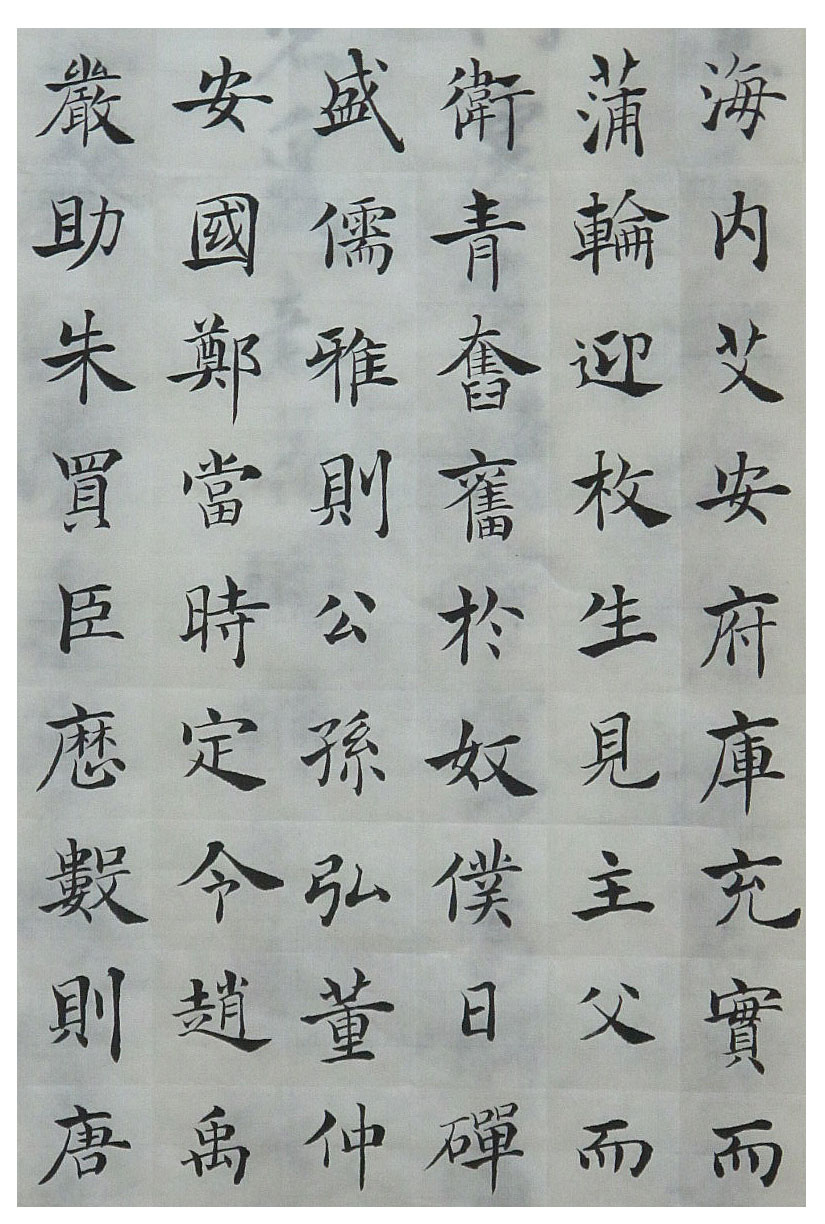 海内艾安府庫充實而
蒲輪迎枚生見主父而
衛青奮舊於奴僕日磾
盛儒雅則公孫弘董仲
安國鄭當時定令趙禹
嚴助朱買臣歷數則唐